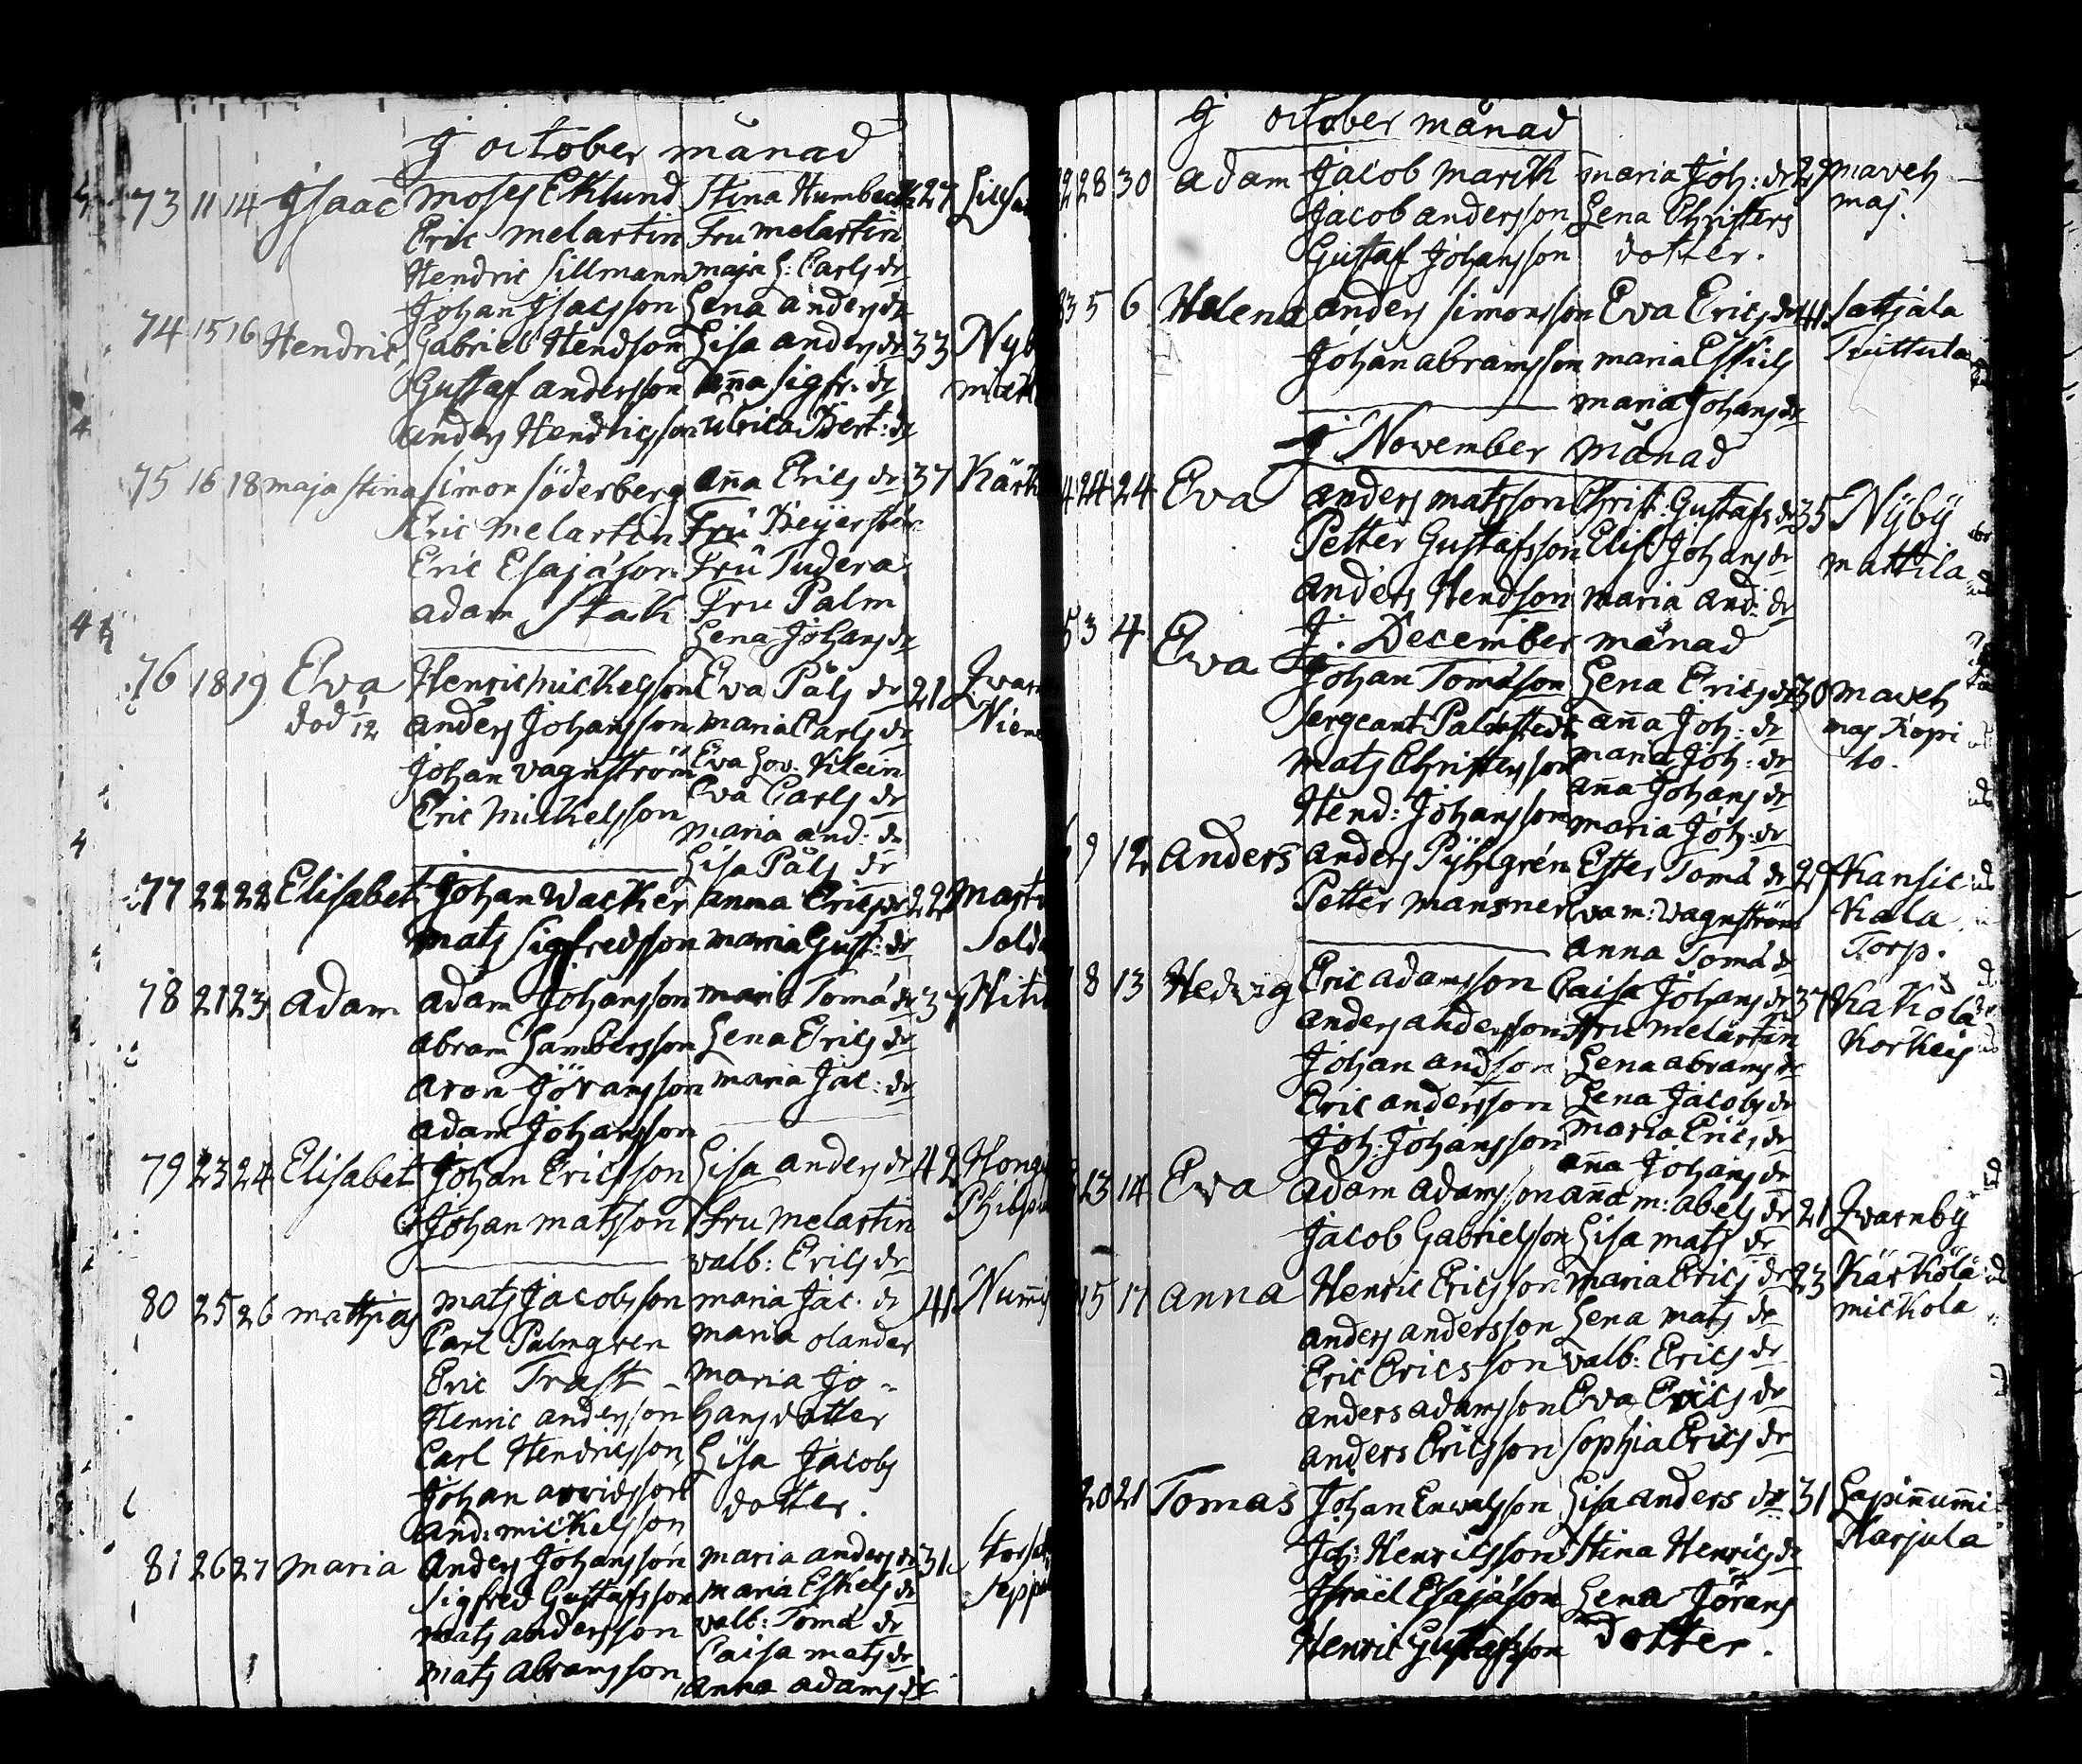 J october månad
73 11 14 Jsaac Moses Eklund Stina Humbeck 27
Eric Melartin Fru Melartin
Hendric Sillmann maja L: Carls dr
Johan Jsacsson Lena anders dr
74 15 16 Hendric Gabriel Hendson Lisa anders dr 33 Nyb
Gustaf andersson aña Sigfr: dr
anders Hendricsson Ulrica Bert: dr
75 16 18 maja Stina Simon Söderberg aña Erics dr 37 Kärk
Eric Melartin Fru
Eric Esajáson Fru Tudera
adam Stark Fru Palm
Lena Johans dr
76 18 19 Eva Henric Mickelsson Eva Påls dr 21 Qvarn
död 12 anders Johansson maria Carls dr Nieme
Johan vagnström Eva Lov. Klein
Eric Mickelsson Eva Carls dr
maria and: dr
Lisa Påls dr
77 22 22 Elisabet Johan Wacker Anna Erics dr 22 Martt
Mats Sigfredsson maria Gust: dr Solda
78 21 23 adam adam Johansson maria Tomá dr 37
abram Lambersson Lena Erics dr
aron Jöransson maria Jac: dr
adam Johansson
79 23 24 Elisabet Johan Ericsson Lisa anders dr 42 Hong
Johan matsson Fru Melartin
valb: Erics dr
80 25 26 mathias mats Jacobsson maria Jac. dr 41 Num̃
Carl Palmgren maria olander
Eric Trast maria Jo-
Henric andersson hans dotter
Carl Hendricsson Lisa Jacobs
Johan arvidsson dotter.
and: mickelsson
81 26 27 maria Anders Johansson maria anders dr 31
Sigfred Gustafsson maria Eskels dr Sepp
mats andersson valb: Tomá dr
mats Abramsson Caisa mats dr
anna adams dr
J october månad
28 30 adam Jacob Marck maria Joh: dr 29 maveh
Jacob andersson Lena Christers maj.
Gustaf Johansson dotter.
5 6 Helena anders Simonsson Eva Erics dr 41 Sattjala
Johan abramsson maria Eskils Tuittula
maria Johans dr
J November månad
24 24 Eva anders matsson Christ: Gustafs dr 35 Nÿbÿ
Petter Gustafsson Elis Johans dr mattila
anders Hendson maria And: dr
J. December månad
3 4 Eva Johan Tomásson Lena Erics dr 30 maveh
Sergeant Palmstedt aña Joh: dr maj Kopi
mats Christersson maria Joh: dr lo.
Hend: Johansson aña Johans dr
maria Joh: dr
9 12 Anders anders Pÿhlgrén Ester Tomá dr 29 Kansic
Petter Mansner Eva m: vagnström Kala
anna Tomá dr Torp.
8 13 Hedvig Eric adamsson Caisa Johans dr 37 Kakola
anders andersson Fru Melartin Korkeis
Johan andson Lena abrams dr
Eric andersson Lena Jacobs dr
Joh: Johansson maria Erics dr
aña Johans dr
13 14 Eva adam adamsson aña m: abels dr 21 Qvarnby
Jacob Gabrielson Lisa mats dr
15 17 anna Henric Ericsson maria Erics dr 23 Kärkölä
anders andersson Lena mats dr mickola
Eric Ericsson valb: Erics dr
anders adamsson Eva Erics dr
anders Ericsson Sophia Erics dr
20 21 Tomas Johan Enwalsson Lisa anders dr 31 Lapiñum̃i
Joh: Henricsson Stina Henrics dr Karjula
Jsraël Esajáson Lena Jörans
Henric Gustafsson dotter.